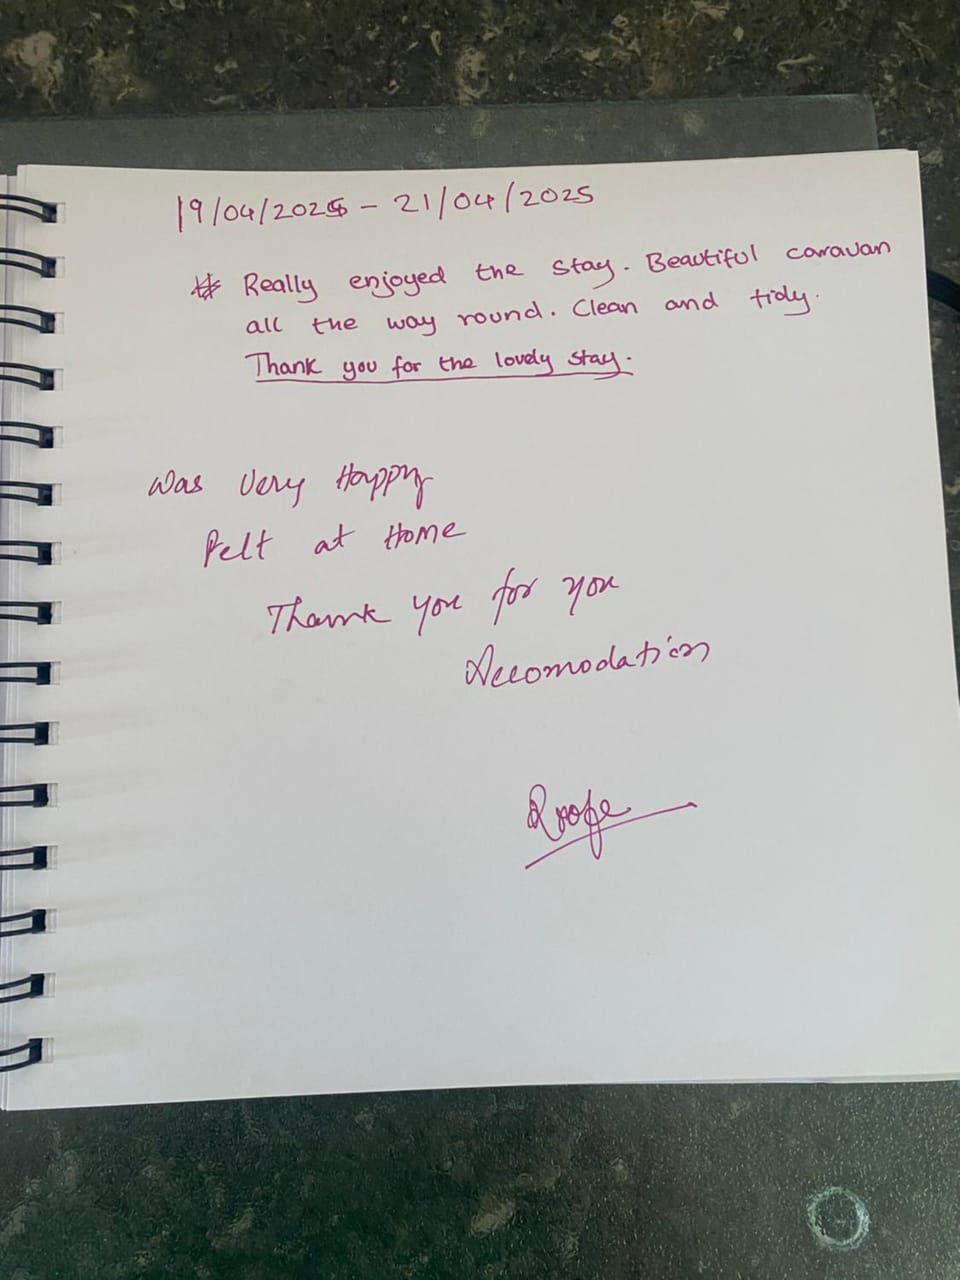 19/04/2025 - 21/04/2025
* Really enjoyed the stay. Beautiful caravan
all the way round. Clean and tidy.
Thank you for the lovely stay.
Was Very Happy
Felt at Home
Thank you for you
Accomodation